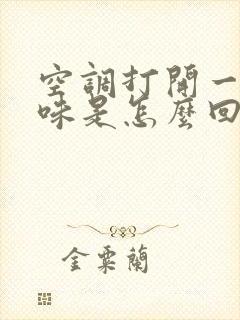 空調打開一
味是怎麼回
金粟蘭